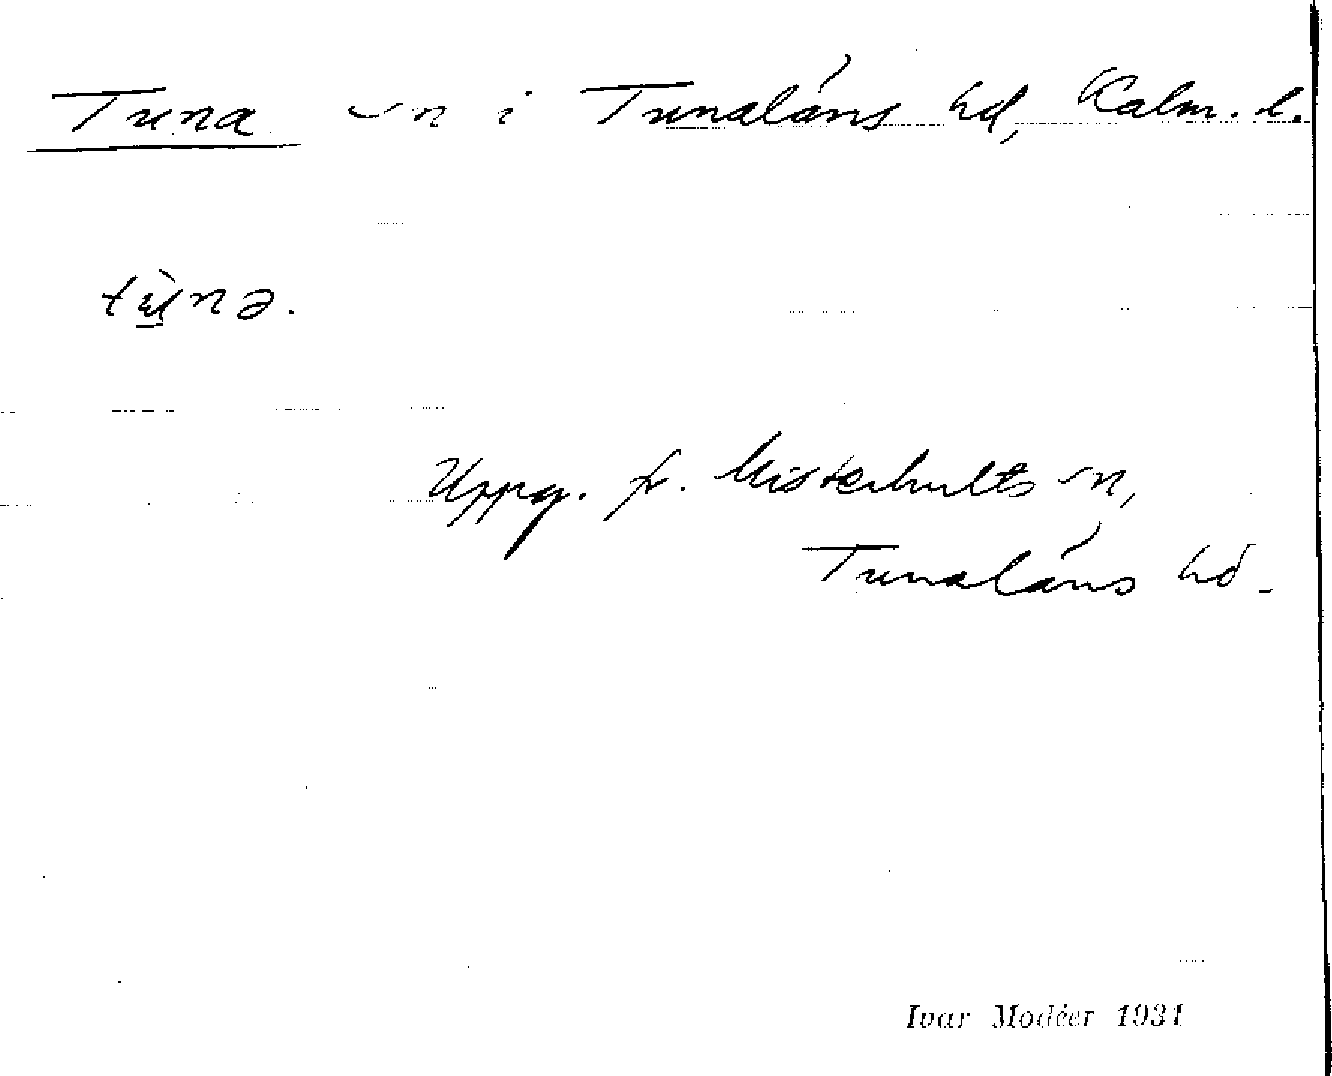 Tuna sn i Tunaläns hd, Kalm. l.
tùnə.
Uppg. fr. Misterhults sn,
Tunaläns hd.
Ivar Modéer 1931